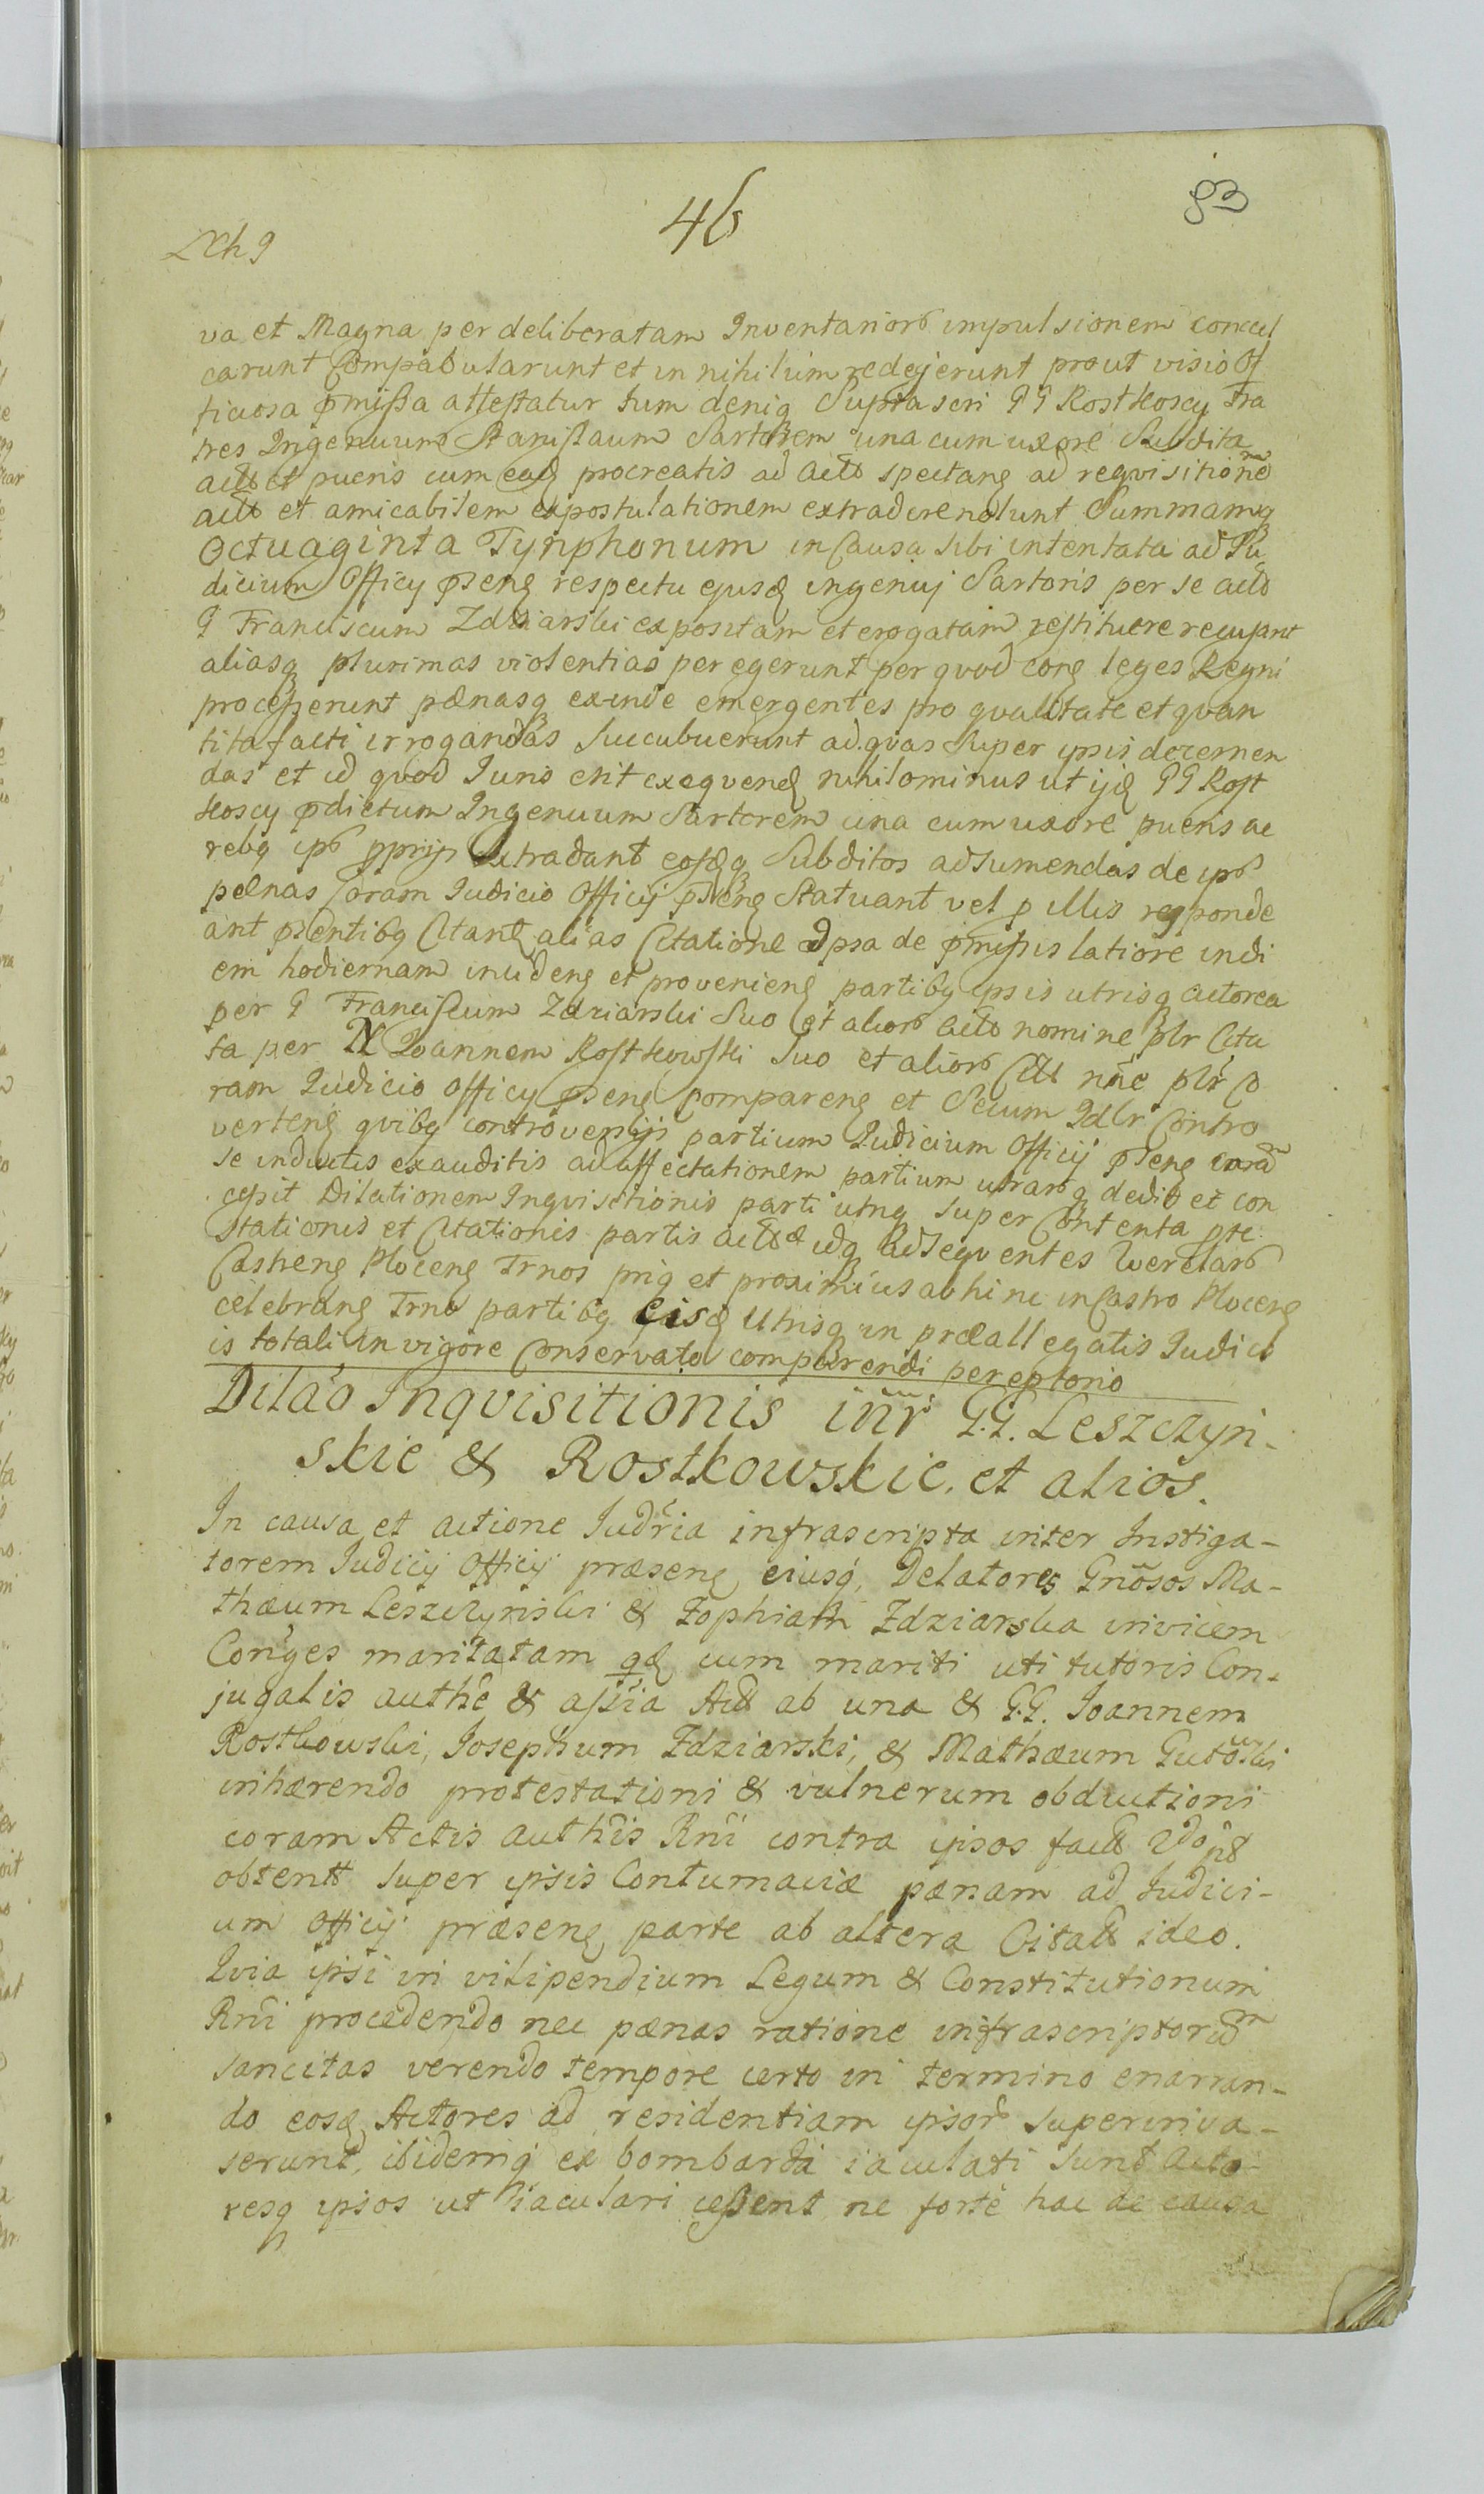 46
83
va et Magna per deliberatam Inventarior impulsionem concul
carunt Compabularunt et in nihilum redejerunt prout visio Of
ficiosa pmissa attestatur tum deniq Suprascri GG Rostkoscy Fra
tres Ingenuum Stanislaum Sartorem una cum uxore Subdita
act et pueris cum eadq procreatis ad act spectanq ad reqvisitionem
act et amicabilem expostulationem extradere nolunt Summamq
Octuaginta Tynphonum in Causa sibi intentata ad Iu
dicium Officy psenq respectu ejusq ingenuj Sartoris per se act
G Franciscum Zdziarski expositam et erogatam restituere recusant
aliasq plurimas violentias per egerunt per qvod conq leges Regni
processerunt pænasq exinde emergentes pro qvalitate et qvan
titafacti irrogandas Succubuerunt ad qvas Super ipsis decernen
das et id qvod Iuris erit exeqvenq nihilominus ut ijq GG Rost
koscy pdictum Ingenuum Sartorem una cum uxore pueris ac
rebq ips pprijs Extradant eosqq Subditos ad sumendas de ips
pænas Coram Iudicio Officij psenq Statuant vel p illis responde
ant psentibq Citanq alias Citatione Ipsa de pmissis latiore indi
em hodiernam incidenq et provenienq partibq ipsis utrisq actorea
per G Franciscum Zdziarski Suo et alior act nomine plr Cita
ta per N Ioannem Rostkowski Suo et alior Cit nne plr Co
ram Iudicio Officy psenq Comparenq et Secum Idlr Contro
vertenq qvibq controversijs partium Iudicium Officij psenq cora
se inductis exauditis ad affectationem partium utrarq dedit et con
cessit Dilationem Inqvisitionis parti utriq Super Contenta pte
stationis et Citationis partis act idq ad seqventes Querelar
Castrenq Plocenq Trnos priq et proximius abhinc in Castro Plocenq
celebranq Trno partibq eisq Utrisq in præallegatis Iudicis
is totali in vigore Conservato comparendi pereptorio
Dilao Inqvisitionis inr G.G. Leszczyn-
skie & Rostkowskie. et alios.
In causa et actione Iudria infrascripta inter Instiga-
torem Iudicij Officij præsenq eiusq, Delatores Gnosos Ma-
thæum Leszczynski & Zophiam Zdziarska invicem
Conges maritatam qq cum mariti uti tutoris Con-
jugalis authe & assia Act ab una & G.G. Ioannem
Rostkowski, Iosephum Zdziarski, & Mathæum Gutowski
inhærendo protestationi & vulnerum obductioni
coram Actis authis Rni contra ipsos fact
obtent super ipsis Contumaciæ pænam ad Iudici-
um Officij præsenq parte ab altera Citat ideo.
Qvia ipsi in vilipendium Legum & Constitutionum
Rni procedendo nec pænas ratione infrascriptorum
sancitas verendo tempore certo in termino enarran-
do eosq Actores ad residentiam ipsor superinva-
serunt, ibidemq ex bombarda iaculati sunt Acto-
resq ipsos ut iaculari cessent ne forte hac de causa